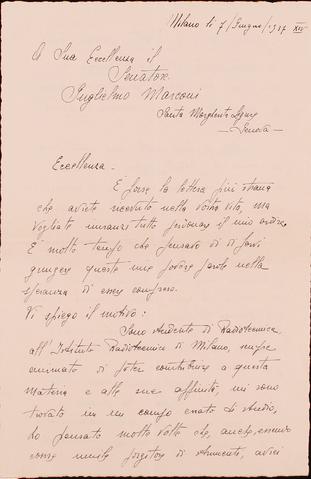 Milano li 7/Giugno/1937 XV
A Sua Eccellenza il
Senatore
Guglielmo Marconi
Santa Margherita Ligure
— Genova —
Eccellenza.
È forse la lettera più strana
che avrete ricevuto nella Vostra vita, ma
Vogliate innanzi tutto perdonare il mio ardire.
È molto tempo che pensavo di di farvi
giungere queste mie povere parole nella
speranza di essere compreso.
Vi spiego il motivo:
Sono studente di Radiotecnica,
all'Istituto Radiotecnico di Milano,
animato di poter contribuire a questa
materia e alle sue affinità, mi sono
trovato in un campo errato di studio,
ho pensato molte volte che, anche, essendo
come umile forgitore di strumenti, avrei